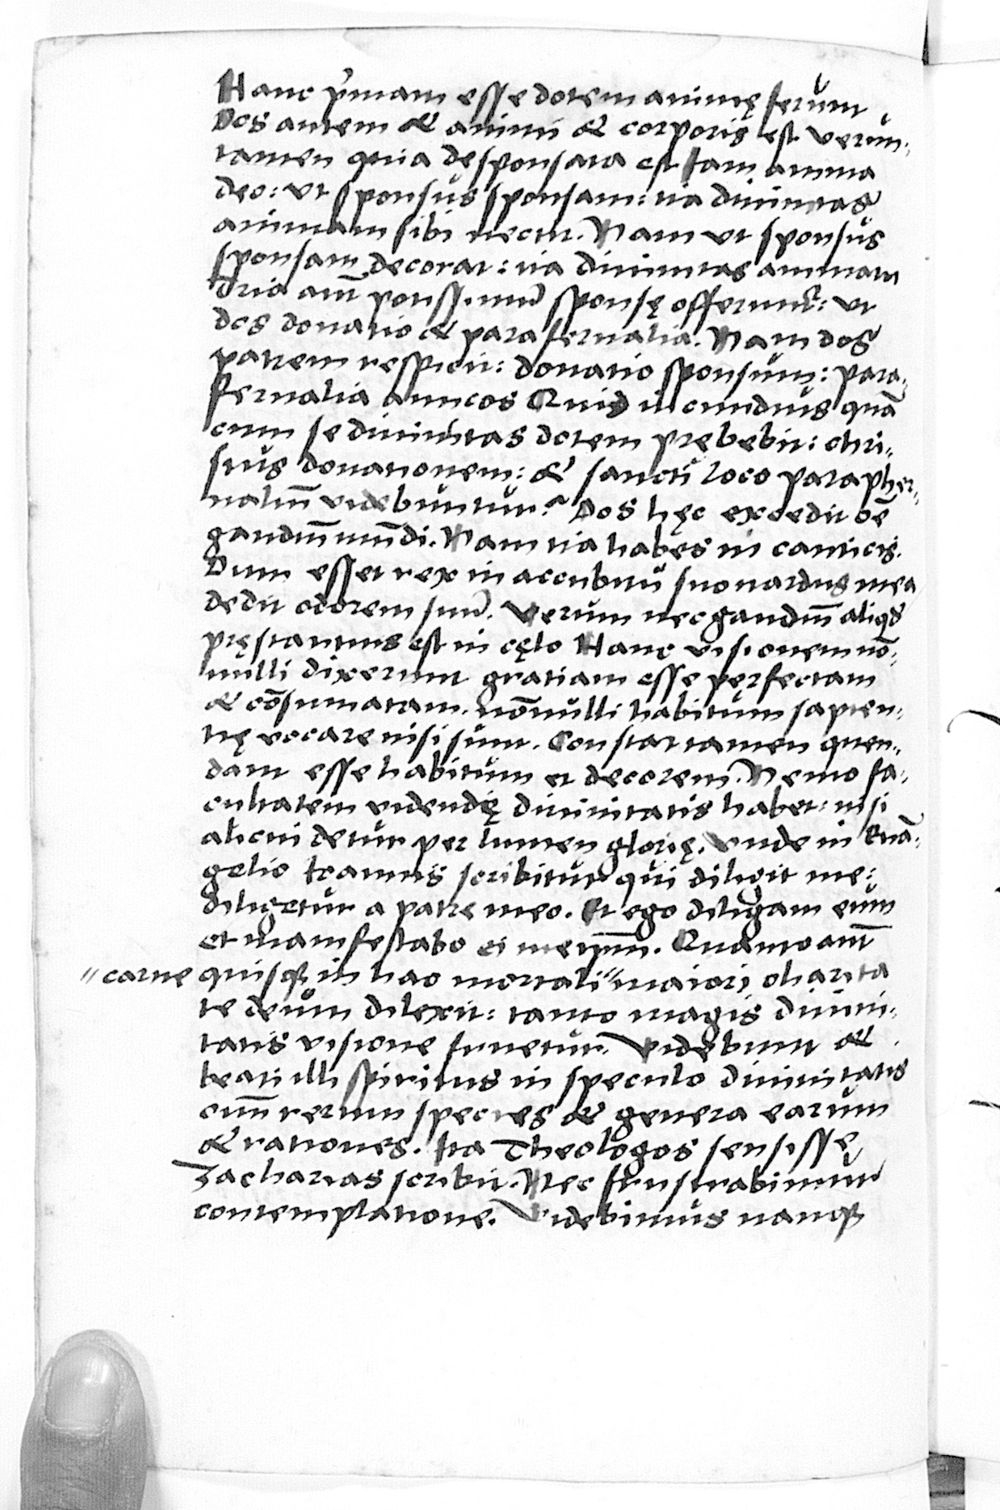 Hanc p̃mam esse dotem animę ferunt
Dos autem & animi & corporis est verun-
tamen quia desponsata est tam anima
deo: ut sponsus sponsam: ita diuinitas
animam sibi nectit. Nam ut sponsus
sponsam decorat: ita diuinitas animam
Tria aut̃ potissimũ sponsę offeruntᷣ: ut
dos donatio & parafernalia. Nam dos
patrem respicit: donatio sponsum: para-
fernalia amicos Quid iucundius quã
cum se diuinitas dotem prębebit: chri-
stus donationem: & sancti loco parapher-
naliũ videbuntur? Dos hęc excedit oẽ
gaudiũ mũdi. Nam ita habes in canticis.
Dum esset rex in accubitu suo nardus mea
dedit odorem suũ. Verum nec gaudiũ aliqđ
pręstantius est in cęlo Hanc visionem nõ-
nulli dixerunt gratiam esse perfectam
& cõsumatam. nõnulli habitum sapien-
tię vocare visi sunt. Constat tamen quen-
dam esse habitum et decorem. Nemo fa-
cultatem videndę diuinitatis habet: nisi
alicui detur per lumen glorię. Vnde in Euã-
gelio Ioannis scribitur qui diligit me:
diligetur a patre meo. Et ego diligam eum
et manifestabo ei meipsum. Quanto aut̃
"carne quisqꝫ in hac mortali "maiori charita
te deum dilexit: tanto magis diuini-
tatis visione fruetur. Videbunt &
beati illi spiritus in speculo diuinitatis
cũ rerum species & genera earum
& rationes. Ita Theologos sensisse
Zacharias scribit. Nec frustrabimur
contemplatione. Videbimus nanqꝫ